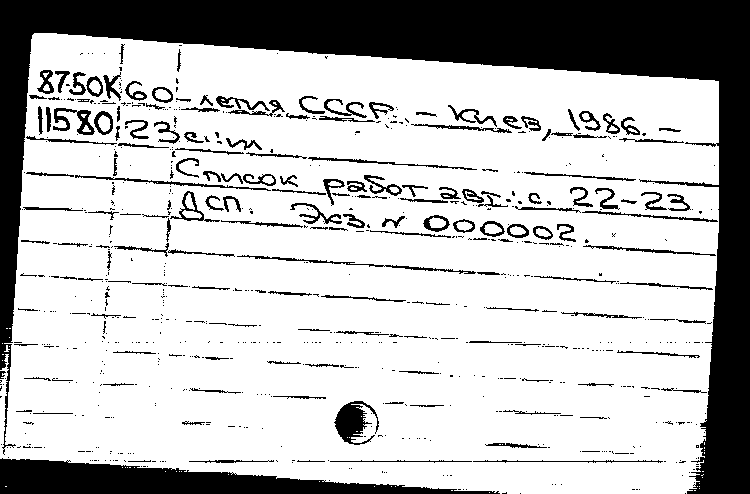 8750К 60-летия СССР. – Киев, 1986. –
11580 23 с.: ил.
Список работ авт.: с. 22-23.
ДСП. Экз. N 000002.